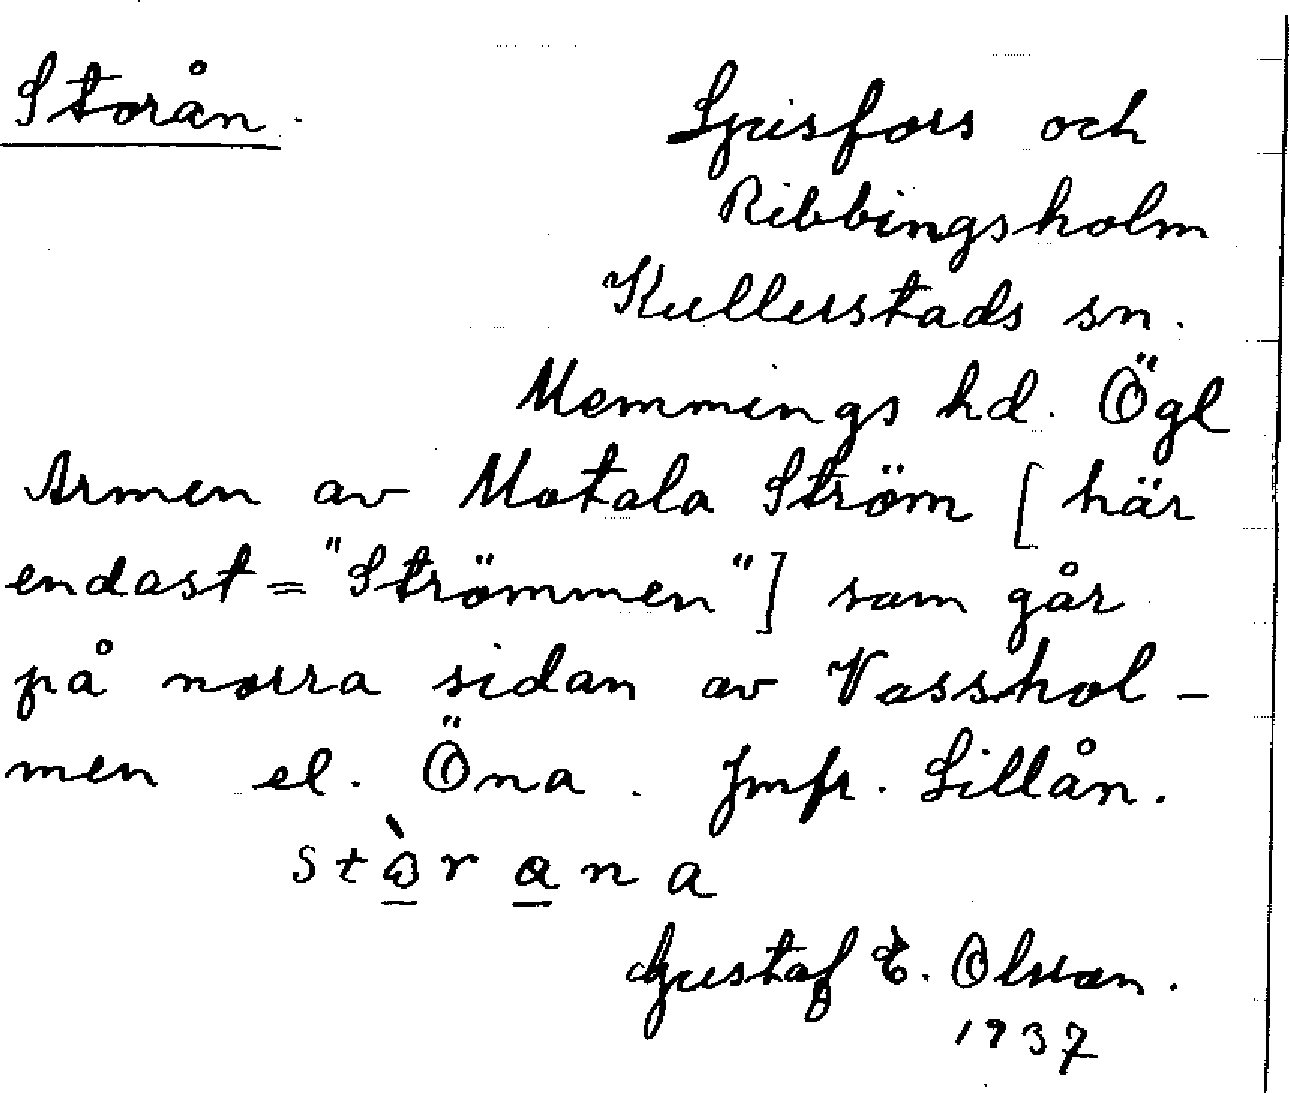 Storån.
Ljusfors och
Ribbingsholm
Kullerstads sn.
Memmings hd. Ögl
Armen av Motala Ström [här
endast = "Strömmen"] som går
på norra sidan av Vasshol-
men el. Öna. Jmfr. Lillån.
Gustaf E. Olsson.
1937